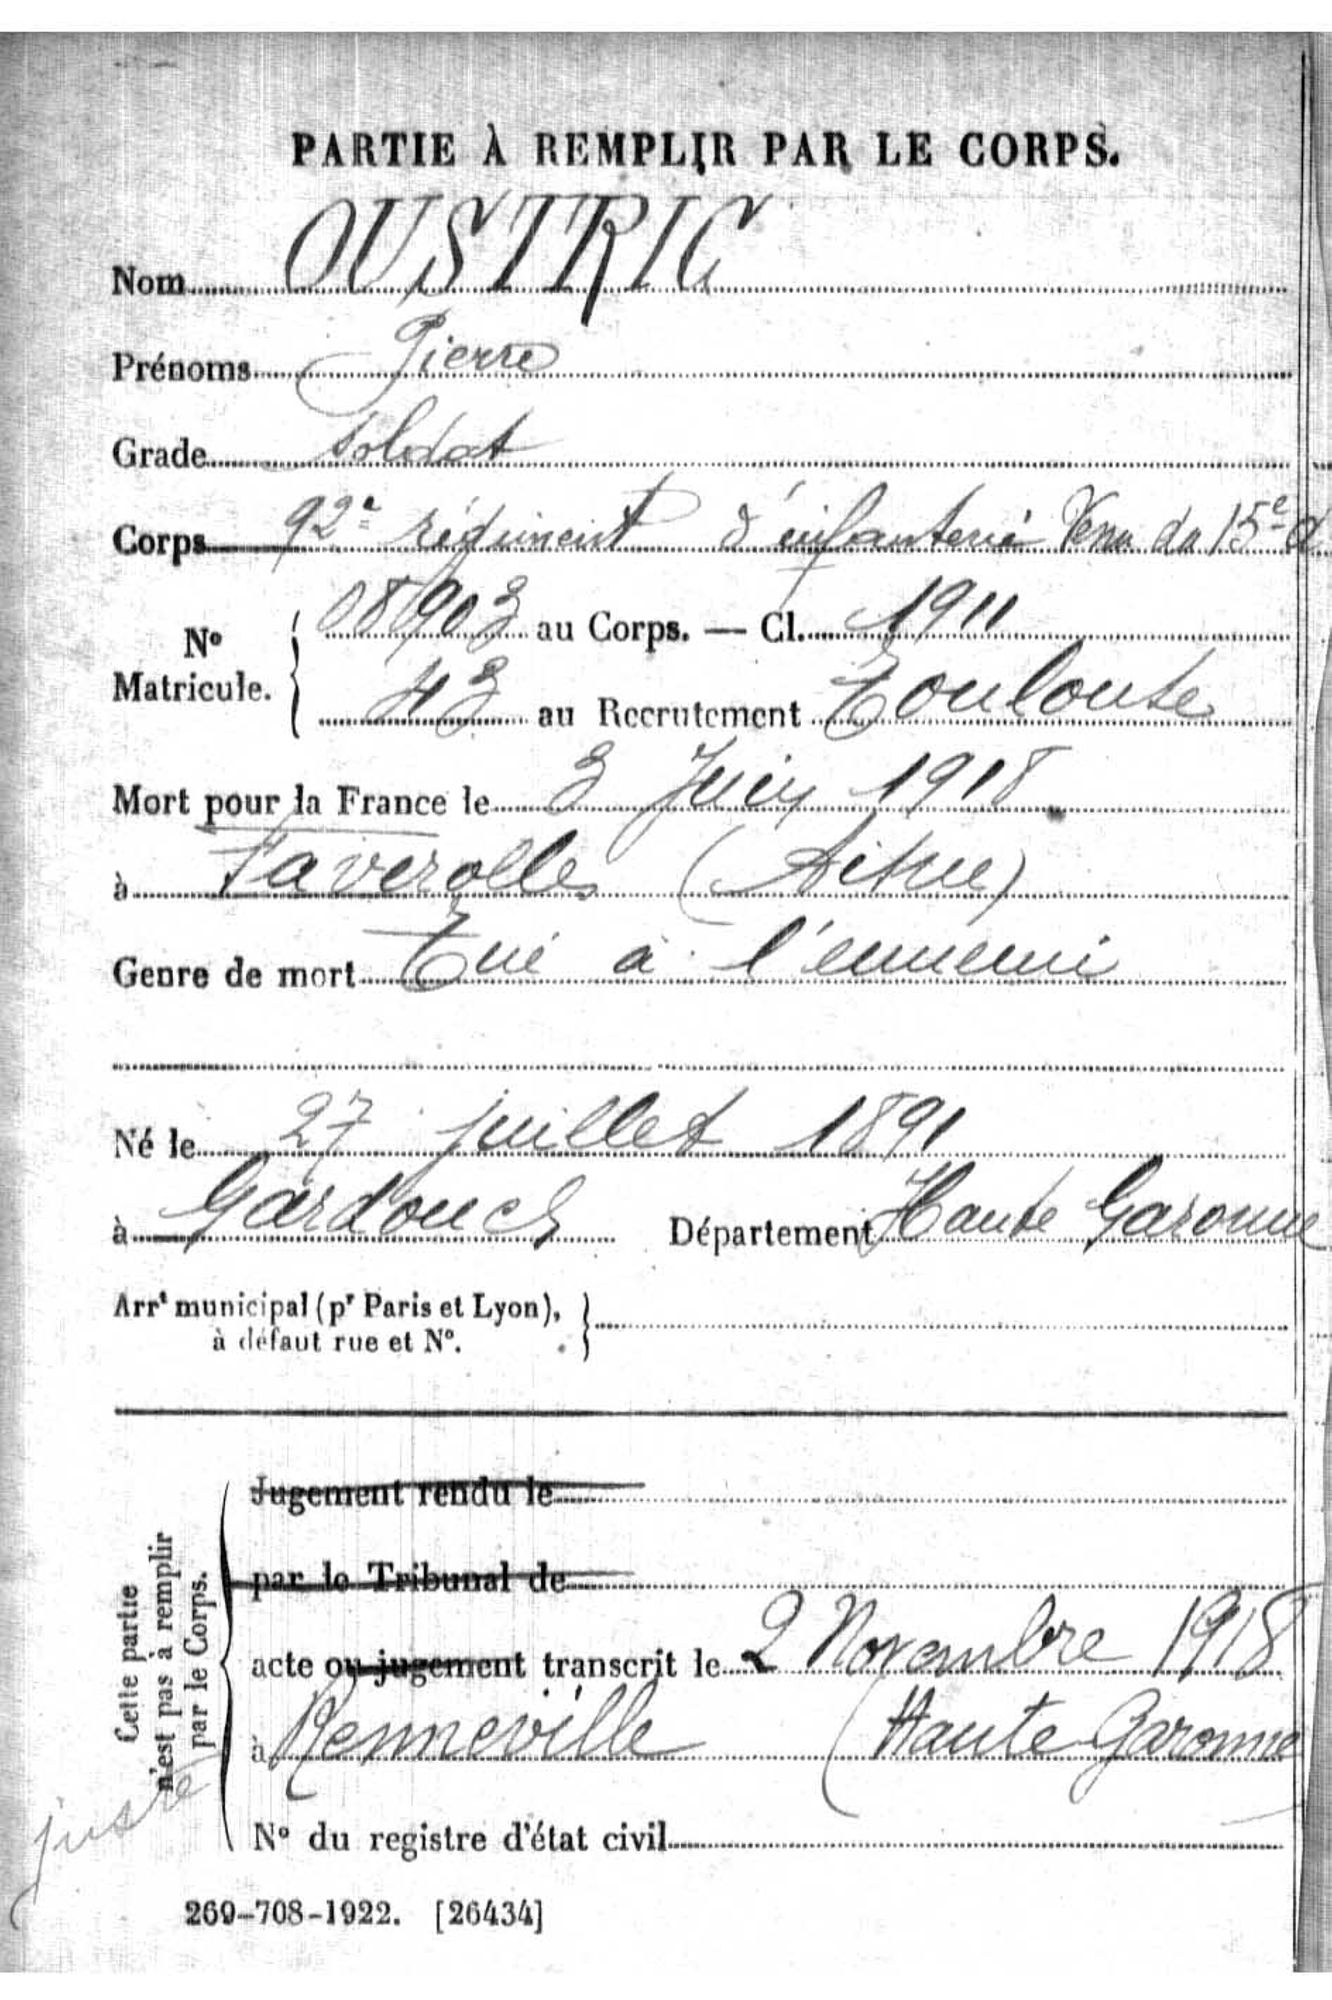 PARTIE À REMPLIR PAR LE CORPS.
Nom OUSTRIC
Prénoms Pierre
Grade soldat
Corps 92e régiment d'infanterie Venu du 15e d
No Matricule. 08903 au Corps. — Cl. 1911
43 au Recrutement Toulouse
Mort pour la France le 3 Juin 1918
à Faverolles (Aisne)
Genre de mort Tué à l'ennemi
Né le 27 juillet 1891
à Gardouch Département Haute Garonne
Arrt municipal (pr Paris et Lyon),
à défaut rue et No.
Cette partie
n'est pas à remplir
par le Corps.
Jugement rendu le
par le Tribunal de
acte ou jugement transcrit le 2 Novembre 1918
à Renneville (Haute Garonne
No du registre d'état civil
juste
269-708-1922. [26434]